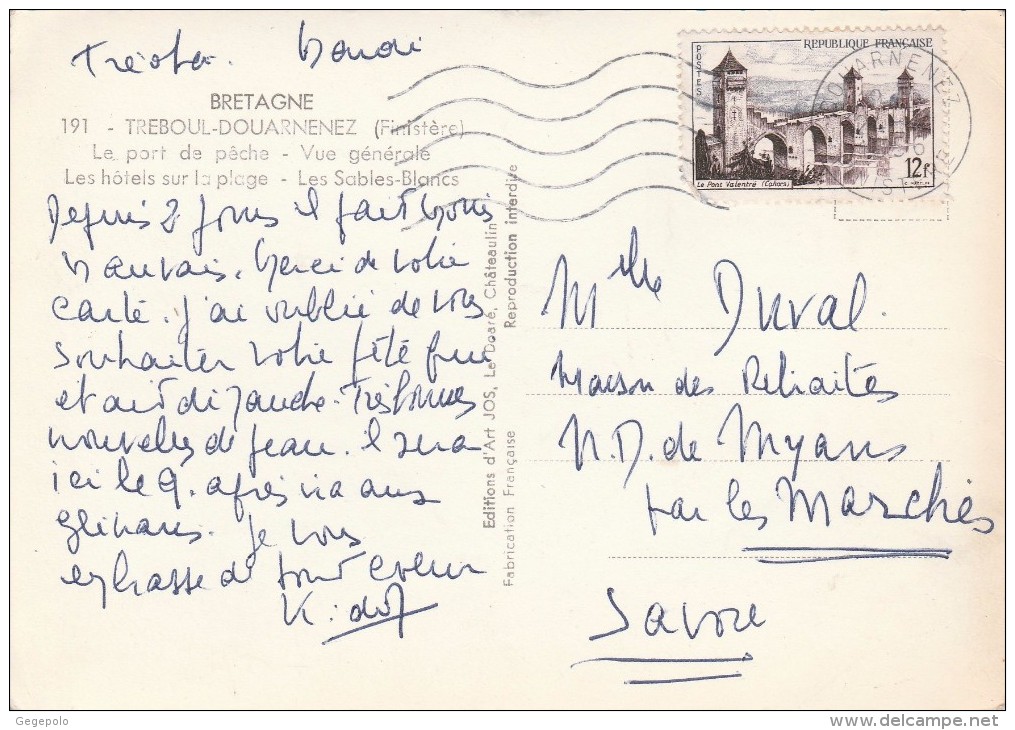 Mardi
BRETAGNE
191 - TREBOUL-DOUARNENEZ (Finistère)
Le port de pêche - Vue générale
Les hôtels sur la plage - Les Sables-Blancs
Depuis 2 jours il fait
mauvais. Merci de votre
carte. J'ai oublié de vous
souhaiter votre fête
et
nouvelles de Jean. il sera
ici le 9. après
Je vous
embrasse de tout coeur
Editions d'Art JOS, Le Doaré, Châteaulin
Reproduction interdite
Fabrication Française
POSTES
REPUBLIQUE FRANÇAISE
Le Pont Valentré (Cahors)
12f
DOUARNENEZ
Mlle Duval.
Maison des Retraites
N.D. de Myans
par les Marches
Savoie
Gegepolo
delcampe.net